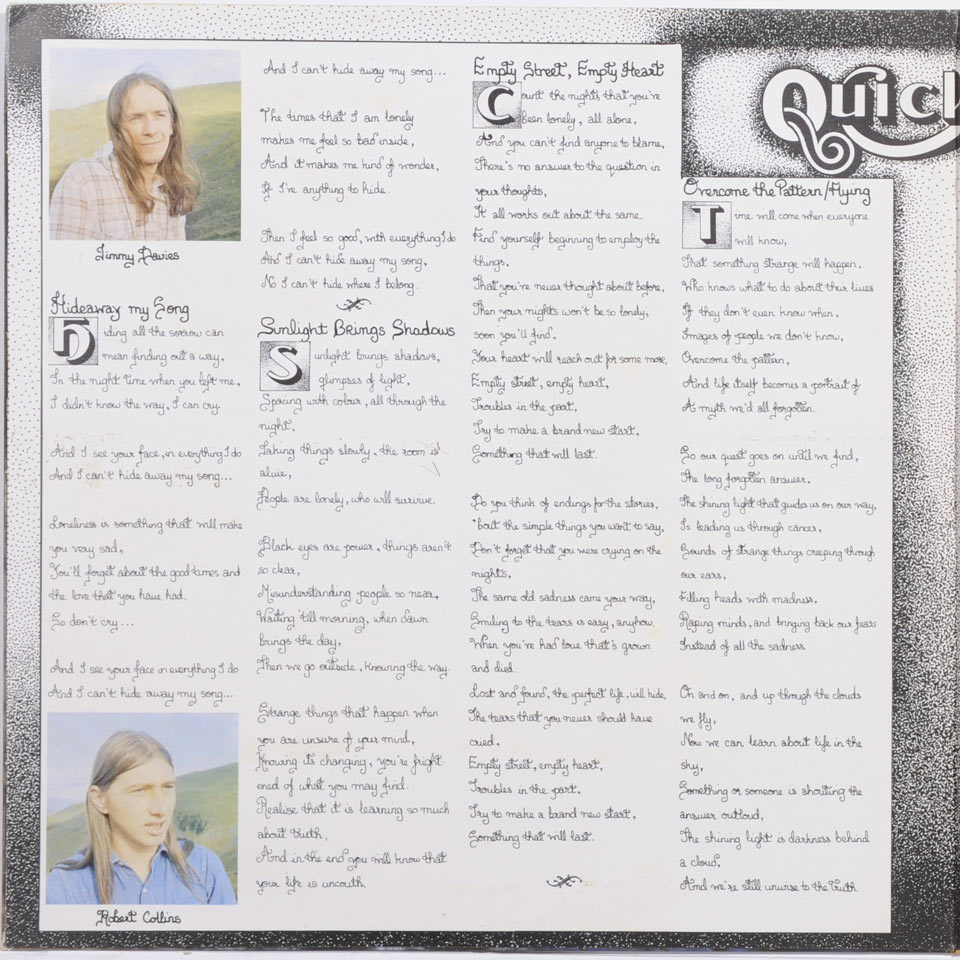 Jimmy Davies
Hideaway my Song
Hiding all the sorrow can
mean finding out a way,
In the night time when you left me,
I didn't know the way, I can cry.
And I see your face, in everything I do
And I can't hide away my song...
Loneliness is something that will make
you very sad,
You'll forget about the good times and
the love that you have had.
So don't cry...
And I see your face in everything I do
And I can't hide away my song...
Robert Collins
And I can't hide away my song...
The times that I am lonely
makes me feel so bad inside,
And it makes me kind of wonder,
If I've anything to hide.
Then I feel so good, with everything I do
And I can't hide away my song,
No I can't hide where I belong.
Sunlight Brings Shadows
Sunlight brings shadows,
glimpses of light,
Spacing with colour, all through the
night,
Taking things slowly, the room is
alive,
People are lonely, who will survive.
Black eyes are power, things aren't
so clear,
Misunderstanding people so near,
Waiting 'till morning, when dawn
brings the day,
Then we go outside, knowing the way.
Strange things that happen when
you are unsure of your mind,
Knowing its changing, you're fright-
ened of what you may find.
Realise that it is learning so much
about truth,
And in the end you will know that
your life is uncouth.
Empty Street, Empty Heart
Count the nights that you've
been lonely, all alone,
And you can't find anyone to blame,
There's no answer to the question in
your thoughts,
It all works out about the same.
Find yourself beginning to employ the
things,
That you've never thought about before,
Then your nights won't be so lonely,
soon you'll find,
Your heart will reach out for some more,
Empty street, empty heart,
Troubles in the part,
Try to make a brand new start,
Something that will last.
Do you think of endings for the stories,
'bout the simple things you want to say,
Don't forget that you were crying on the
nights,
The same old sadness came your way,
Smiling to the tears is easy, anyhow.
When you've had love that's grown
and died.
Lost and found, the perfect life, will hide,
The tears that you never should have
cried,
Empty street, empty heart,
Troubles in the part,
Try to make a brand new start,
Something that will last.
Quick
Overcome the Pattern/Flying
Time will come when everyone
will know,
That something strange will happen,
Who knows what to do about their lives
If they don't even know when,
Images of people we don't know,
Overcome the pattern,
And life itself becomes a portrait of
A myth we'd all forgotten.
So our quest goes on until we find,
The long forgotten answer.
The shining light that guides us on our way,
Is leading us through cancer,
Sounds of strange things creeping through
our ears,
Filling heads with madness,
Raping minds, and bringing back our fears
Instead of all the sadness.
On and on, and up through the clouds
we fly,
Now we can learn about life in the
sky,
Something or someone is shouting the
answer outloud,
The shining light is darkness behind
a cloud,
And we're still unwise to the Truth.